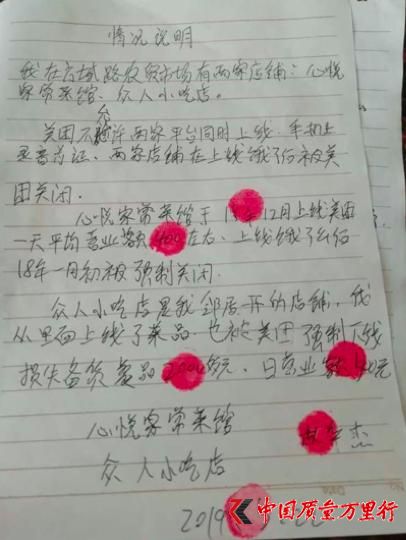 情况说明
我在云城路农贸市场有两家店铺：心悦
家常菜馆、众人小吃店。
允
美团不许两家平台同时上线，手机上
录音为证，两家店铺在上线饿了么后被美
团关闭。
心悦家常菜馆于 年12月上线美团
一天平均营业额 左右，上线饿了么后
18年一月初被预制关闭.
众人小吃店是我邻居开的店铺，我
从里面上线了菜品，也被美团预制下线
损失备货 元，日营业额 元
心悦家常菜馆
众人小吃店
2019
中国质量万里行